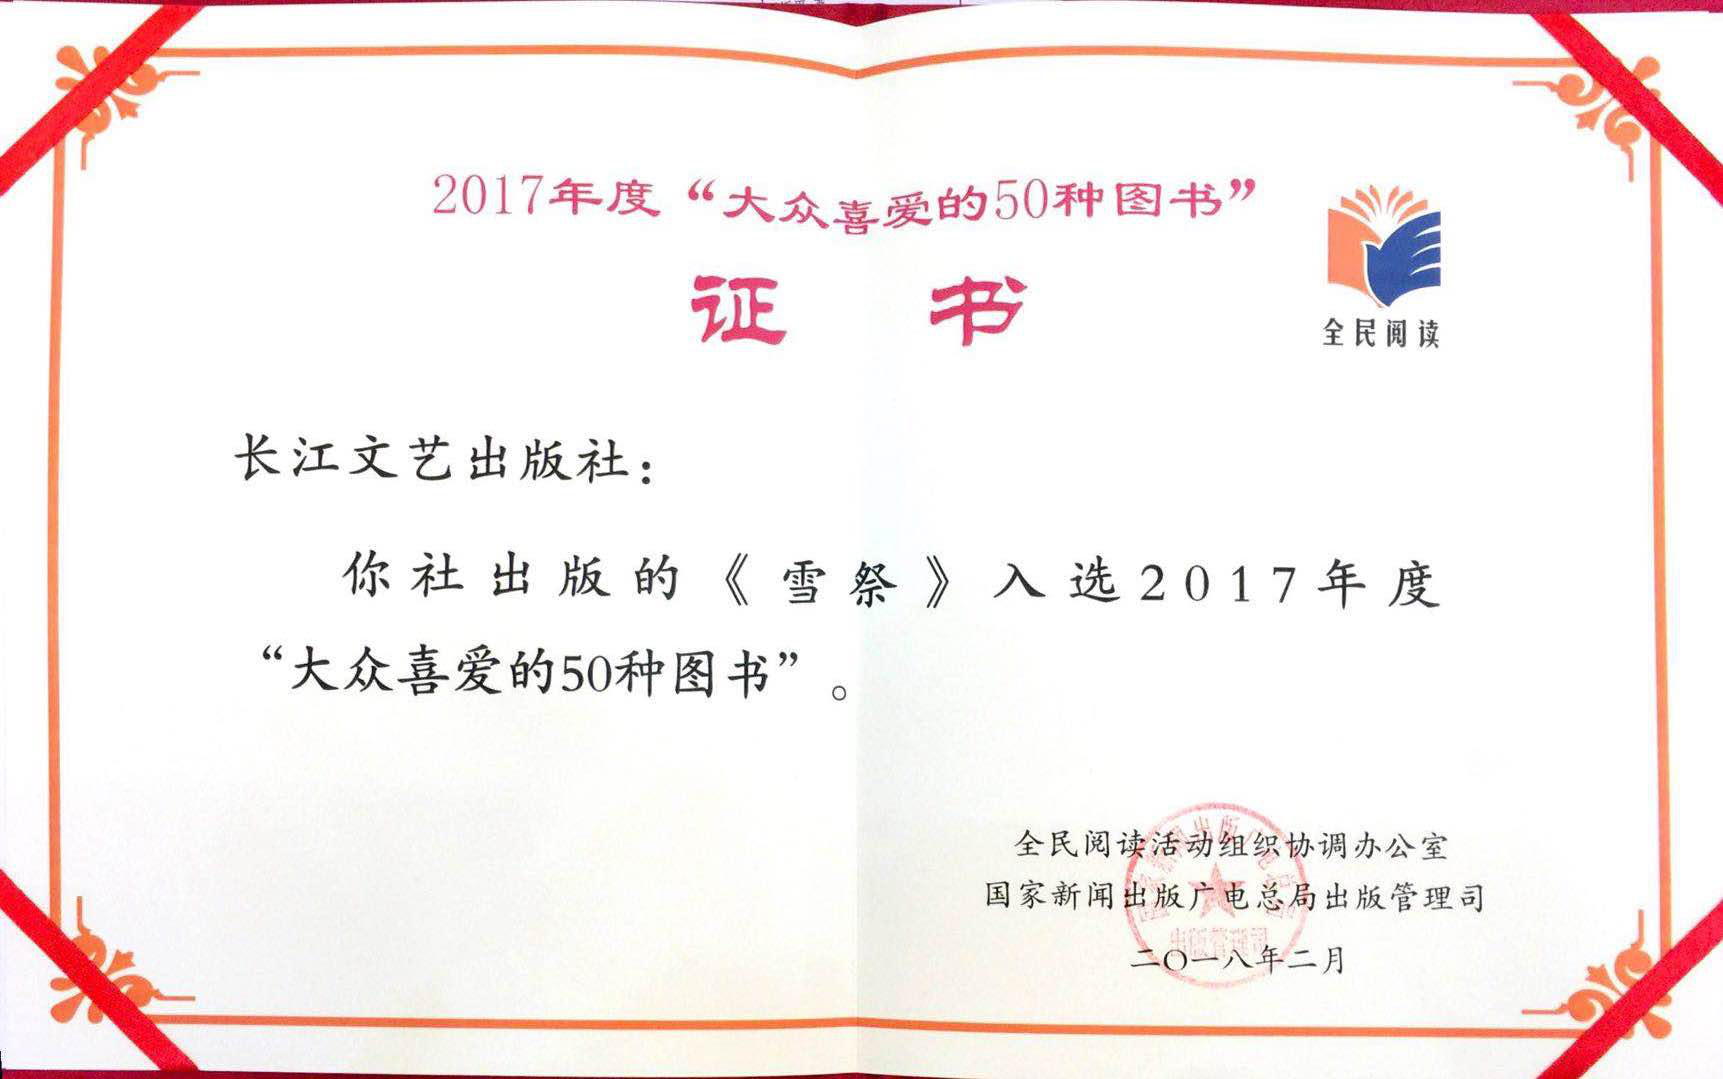 2017年度“大众喜爱的50种图书”
证书
全民阅读
长江文艺出版社：
你社出版的《雪祭》入选2017年度
“大众喜爱的50种图书”。
全民阅读活动组织协调办公室
国家新闻出版广电总局出版管理司
二〇一八年二月
国家新闻出版广电总局
出版管理司